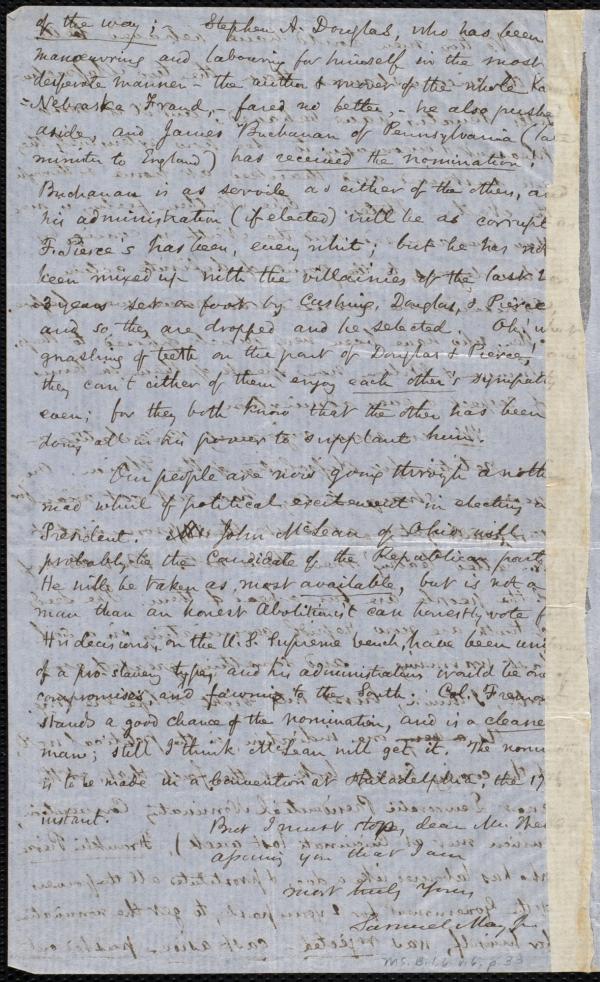 of the way; - Stephen A. Douglas, who has been
manoeuvring and labouring for himself in the most
desperate manner - the author & mover of the whole Ka
-Nebraska Fraud, - fared no better, - he also pushe
aside, and James Buchanan of Pennsylvania (late
minister to England) has received the nomination
Buchanan is as servile as either of the others, an
his administration (if elected) will be as corrupt
F. Pierce's has been, every whit; but he has not
been mixed up with the villainies of the last 2
3 years set on foot by Cushing, Douglas, & Pierce
and so they are dropped and he selected. Oh! what
gnashing of teeth on the part of Douglas & Pierce,
they can't either of them enjoy each other's sympathy
even; for they both know that the other has been
doing all in his power to supplant him.
Our people are now going through anoth
mad whirl of political excitement in electing a
President. John McLean of Ohio will
probably be the Candidate of the Republican party
He will be taken as most available, but is not a
man than an honest Abolitionist can honestly vote f
His decisions, on the U.S. Supreme bench, have been uni
of a pro-slavery type, and his administration would be one
compromises and fawning to the South. Col. Fremon
stands a good chance of the nomination, and is a cleane
man; still I think McLean will get it. The nomin
is to be made in a Convention at Philadelphia, the 17
instant.
But I must stop, dear Mr.
assuring you that I am
most truly Yours,
Samuel May, Jr.
Ms. B.1.6 v.6, p 33